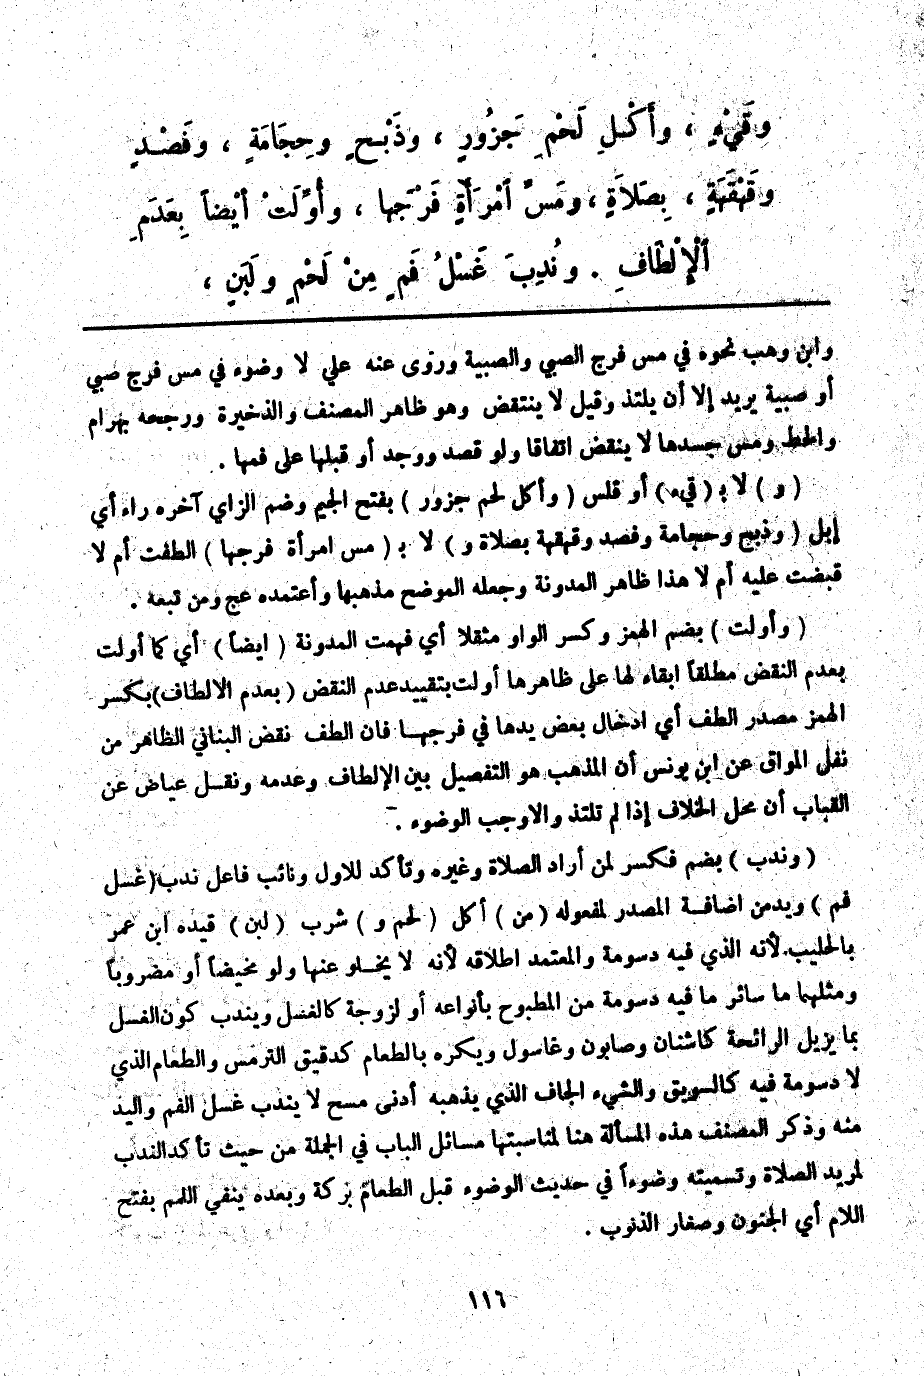 وَقَيْءٍ ، وأَكْلِ لَحْمِ جَزُورٍ ، وذَبْحٍ وحِجَامَةٍ ، وفَصْدٍ
وقَهْقَهَةٍ ، بِصَلاَةٍ ، ومَسِّ اَمْرَأَةٍ فَرْجَها ، وأُوِّلَتْ أيْضاً بِعَدَمِ
اَلْإلْطَافِ . ونُدِبَ غَسْلُ فَمٍ مِنْ لَحْمٍ ولَبَنٍ ،
وابن وهب نحوه في مس فرج الصبي والصبية وروى عنه علي لا وضوء في مس فرج صبي
أو صبية يريد إلا أن يلتذ وقيل لا ينتقض وهو ظاهر المصنف والذخيرة ورجحه بهرام
والحط ومس جسدها لا ينقض اتفاقا ولو قصد ووجد أو قبلها على فمها .
( و ) لا بـ ( قيء ) أو قلس ( وأكل لحم جزور ) بفتح الجيم وضم الزاي آخره راء أي
إبل ( وذبح وحجامة وفصد وقهقهة بصلاة و ) لا بـ ( مس امرأة فرجها ) الطفت أم لا
قبضت عليه أم لا هذا ظاهر المدونة وجعله الموضح مذهبها وأعتمده عج ومن تبعه .
( وأولت ) بضم الهمز وكسر الواو مثقلا أي فهمت المدونة ( ايضاً ) أي كما أولت
بعدم النقض مطلقاً ابقاء لها على ظاهرها أولت بتقييد عدم النقض ( بعدم الالطاف ) بكسر
الهمز مصدر الطف أي ادخال بعض يدها في فرجها فان الطف نقض البناني الظاهر من
نقل المواق عن ابن يونس أن المذهب هو التفصيل بين الإلطاف وعدمه ونقل عياض عن
القباب أن محل الخلاف إذا لم تلتذ والاوجب الوضوء .
( وندب ) بضم فكسر لمن أراد الصلاة وغيره وتأكد للاول ونائب فاعل ندب ( غسل
فم ) ويدمن اضافة المصدر لمفعوله ( من ) أكل ( لحم و ) شرب ( لبن ) قيده ابن عمر
بالحليب لأنه الذي فيه دسومة والمعتمد اطلاقه لأنه لا يخلو عنها ولو مخيضاً أو مضروباً
ومثلهما ما سائر ما فيه دسومة من المطبوح بأنواعه أو لزوجة كالعسل ويندب كون الغسل
بما يزيل الرائحة كاشنان وصابون وغاسول ويكره بالطعام كدقيق الترمس والطعام الذي
لا دسومة فيه كالسويق والشيء الجاف الذي يذهبه أدنى مسح لا يندب غسل الفم واليد
منه وذكر المصنف هذه المسألة هنا لمناسبتها مسائل الباب في الجملة من حيث تأكد الندب
لمريد الصلاة وتسميته وضوءاً في حديث الوضوء قبل الطعام بركة وبعده ينفي اللمم بفتح
اللام أي الجنون وصغار الذنوب .
١١٦